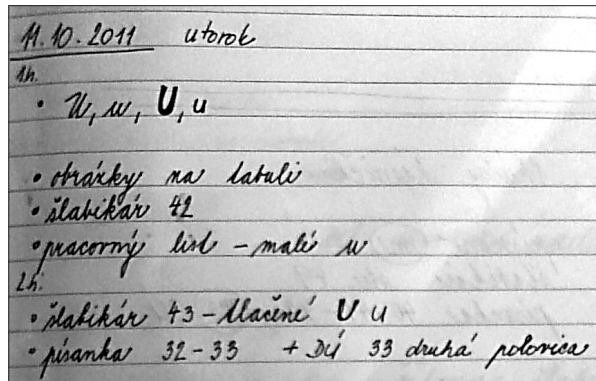 11.10.2011 utorok
1h.
• U, u, U, u
• obrázky na tabuli
• šlabikár 42
• pracovný list - malé u
2h.
• šlabikár 43 - tlačené U u
• písanka 32-33 + DÚ 33 druhá polovica